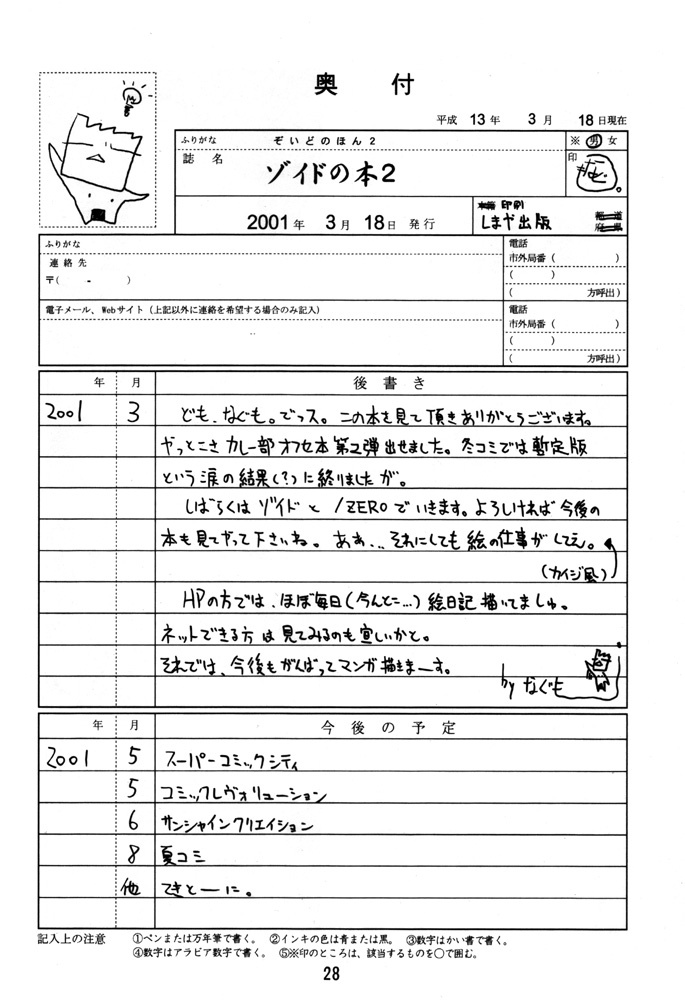 奥付
平成 13年 3月 18日現在
ふりがな ぞいどのほん2
※ 男 女
誌名 ゾイドの本2
印
2001年 3月 18日 発行
印刷
しまや出版
ふりがな
連絡先
〒( - )
電話
市外局番 ( )
( )
( 方呼出)
電子メール、Webサイト (上記以外に連絡を希望する場合のみ記入)
電話
市外局番 ( )
( )
( 方呼出)
年 月 後書き
2001 3 ども、なぐも。でっス。この本を見て頂きありがとうございます。
やっとこさ カレー部 オフセ本 第2弾 出せました。冬コミでは暫定版
という涙の結果(?)に終りましたが。
しばらくは ゾイドと /ZEROでいきます。よろしければ 今後の
本も見てやって下さいね。あぁ... それにしても 絵の仕事が してえ。
(カイジ風)
HPの方では、ほぼ毎日(今んとこ...)絵日記 描いてましゅ。
ネットできる方は 見てみるのも宜しいかと。
それでは、今後もがんばってマンガ描きまーす。
by なぐも
年 月 今後の予定
2001 5 スーパーコミックシティ
5 コミックレヴォリューション
6 サンシャインクリエイション
8 夏コミ
他 てきとーに。
記入上の注意 ①ペンまたは万年筆で書く。 ②インキの色は青または黒。 ③数字はかい書で書く。
④数字はアラビア数字で書く。 ⑤※印のところは、該当するものを○で囲む。
28